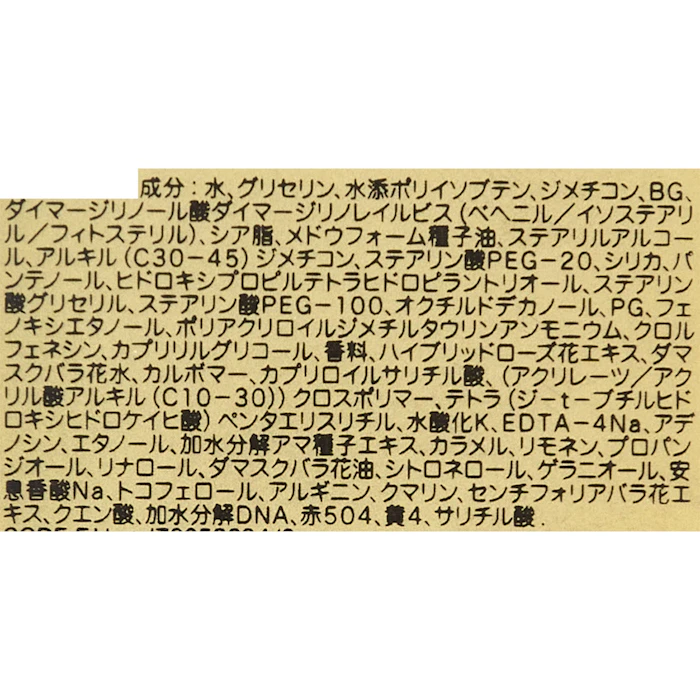 成分：水、グリセリン、水添ポリイソブテン、ジメチコン、BG、
ダイマージリノール酸ダイマージリノレイルビス（ベヘニル／イソステアリ
ル／フィトステリル）、シア脂、メドウフォーム種子油、ステアリルアルコー
ル、アルキル（C30-45）ジメチコン、ステアリン酸PEG-20、シリカ、パ
ンテノール、ヒドロキシプロピルテトラヒドロピラントリオール、ステアリン
酸グリセリル、ステアリン酸PEG-100、オクチルドデカノール、PG、フェ
ノキシエタノール、ポリアクリロイルジメチルタウリンアンモニウム、クロル
フェネシン、カプリリルグリコール、香料、ハイブリッドローズ花エキス、ダマ
スクバラ花水、カルボマー、カプリロイルサリチル酸、（アクリレーツ／アク
リル酸アルキル（C10-30））クロスポリマー、テトラ（ジ-t-ブチルヒド
ロキシヒドロケイヒ酸）ペンタエリスリチル、水酸化K、EDTA-4Na、アデ
ノシン、エタノール、加水分解アマ種子エキス、カラメル、リモネン、プロパン
ジオール、リナロール、ダマスクバラ花油、シトロネロール、ゲラニオール、安
息香酸Na、トコフェロール、アルギニン、クマリン、センチフォリアバラ花エ
キス、クエン酸、加水分解DNA、赤504、黄4、サリチル酸.